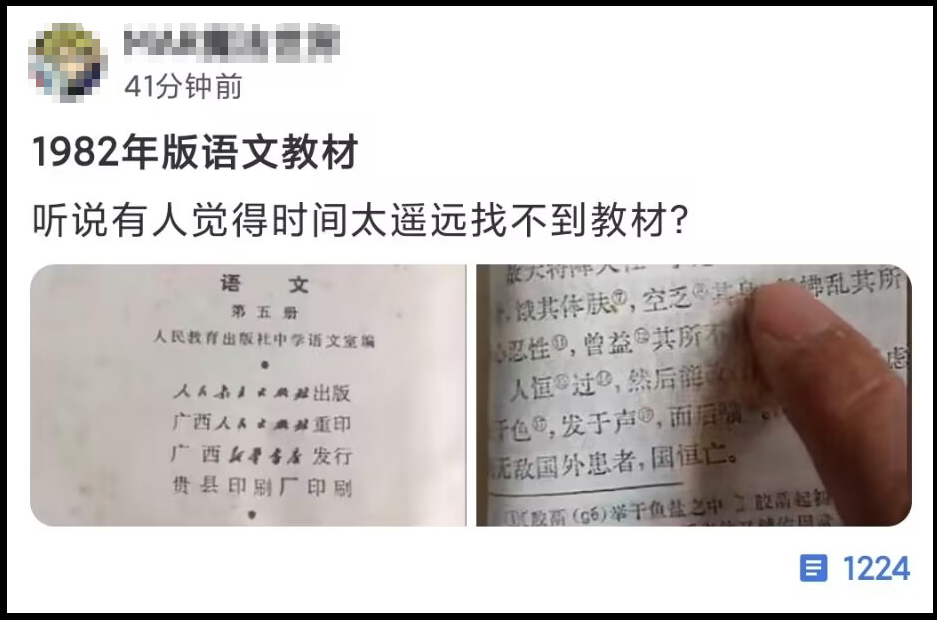 41分钟前
1982年版语文教材
听说有人觉得时间太遥远找不到教材?
语 文
第五册
人民教育出版社中学语文室编
人民教育出版社出版
广西人民出版社重印
广西新华书店发行
贵县印刷厂印刷
饿其体肤⑦,空乏
拂乱其所
心忍性⑪,曾益⑫其所不
人恒⑬过⑭,然后能改
虑
于色⑰,发于声⑱,而后喻
无敌国外患者,国恒亡。
胶鬲(gé)举于鱼盐之中